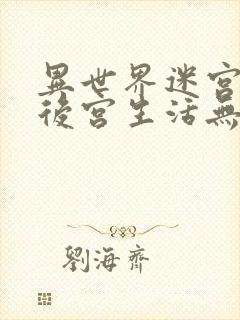 異世界迷宮
後宮生活無
劉海齊